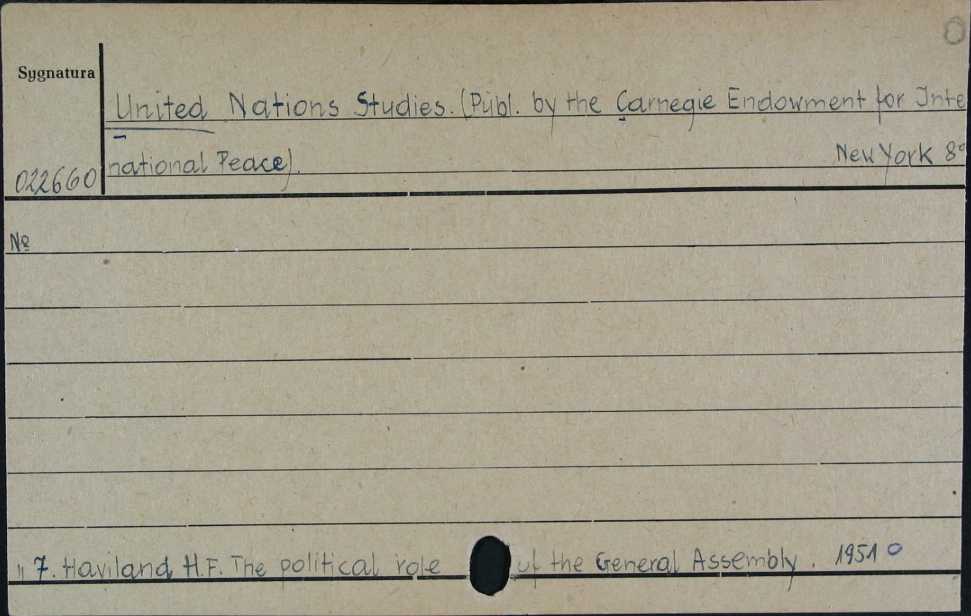 Sygnatura
United Nations Studies. (Publ. by the Carnegie Endowment for Inte
national Peace).
New York 8°
022660
№
" 7. Haviland H.F. The political role of the General Assembly. 1951